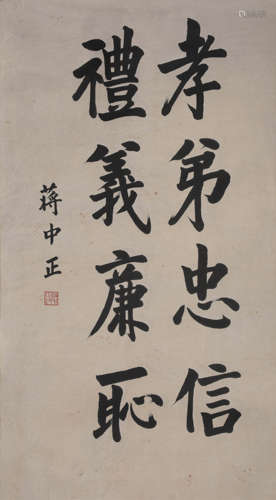 孝弟忠信
禮義廉恥
蔣中正